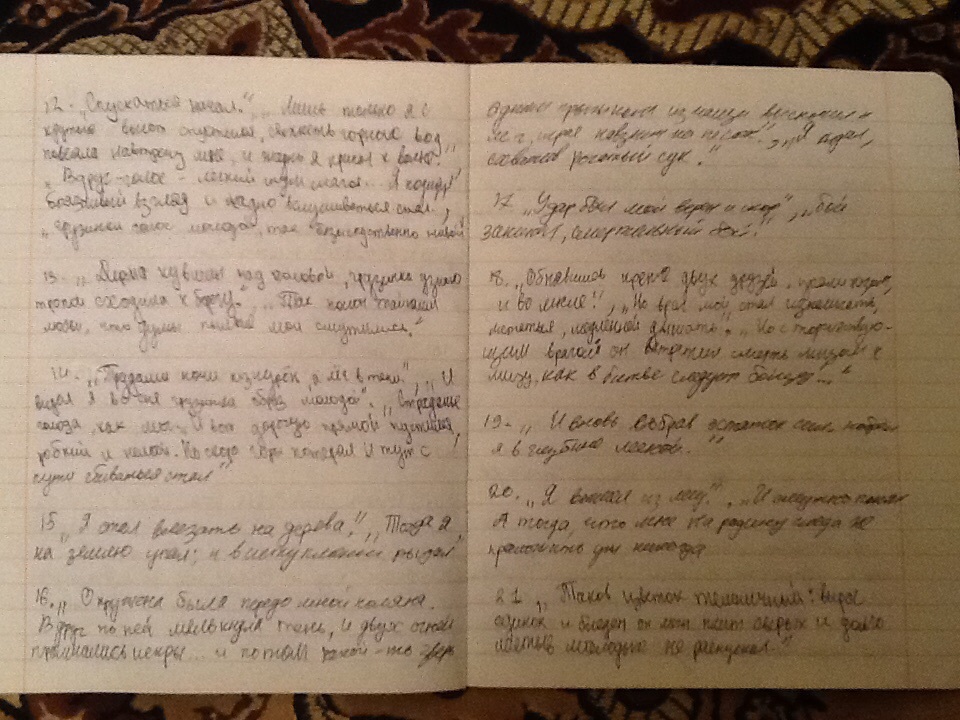 12. „Спускаться начал.", „Лишь только я с
крутых высот спустился, свежесть горных вод
повеяла навстречу мне, и жадно я припал к волне."
„Вдруг-голос - легкий шум шагов... Я поднял
боязливый взгляд и жадно вслушиваться стал.",
„грузинки голос молодой, так безыскусственно живой
13. „Держа кувшин над головой, грузинка узкою
тропой сходила к берегу." „
любви, что думы пылкие мои смутились."
14. „Трудами ночи изнурён, я лёг в тени.", „И
видел я во сне грузинки образ молодой". „Страданье
голода, как мог. И вот дорогою прямой пустился,
робкий и немой. Но скоро горы потерял и тут с
пути сбиваться стал"
15 „Я стал влезать на дерева", „Тогда я
на землю упал; и в исступлении рыдал,
16. „Окружена была передо мной поляна.
Вдруг по ней мелькнула тень, и двух огней
промчались искры... и потом какой-то зверь
одним прыжком из чащи выскочил и
лег, играя навзничь на песок". „Я ждал,
схватив рогатый сук."
17 „Удар был мой верен и скор", „бой
закипел, смертельный бой".
18. „Обнявшись крепче двух друзей,
и во мгле", „Но враг мой стал изнемогать,
метаться, медленней дышать". „Но с торжествую-
щим врагом он встретил смерть лицом к
лицу, как в битве следует бойцу..."
19. „И вновь, собрав остаток сил, побрел
я в глубине лесной."
20. „Я вышел из лесу". „И смутно понял
я тогда, что мне на родину следа не
проложить уж никогда
21 „Таков цветок темничный: вырос
одинок и бледен он меж плит сырых и долго
листьев молодых не распускал"